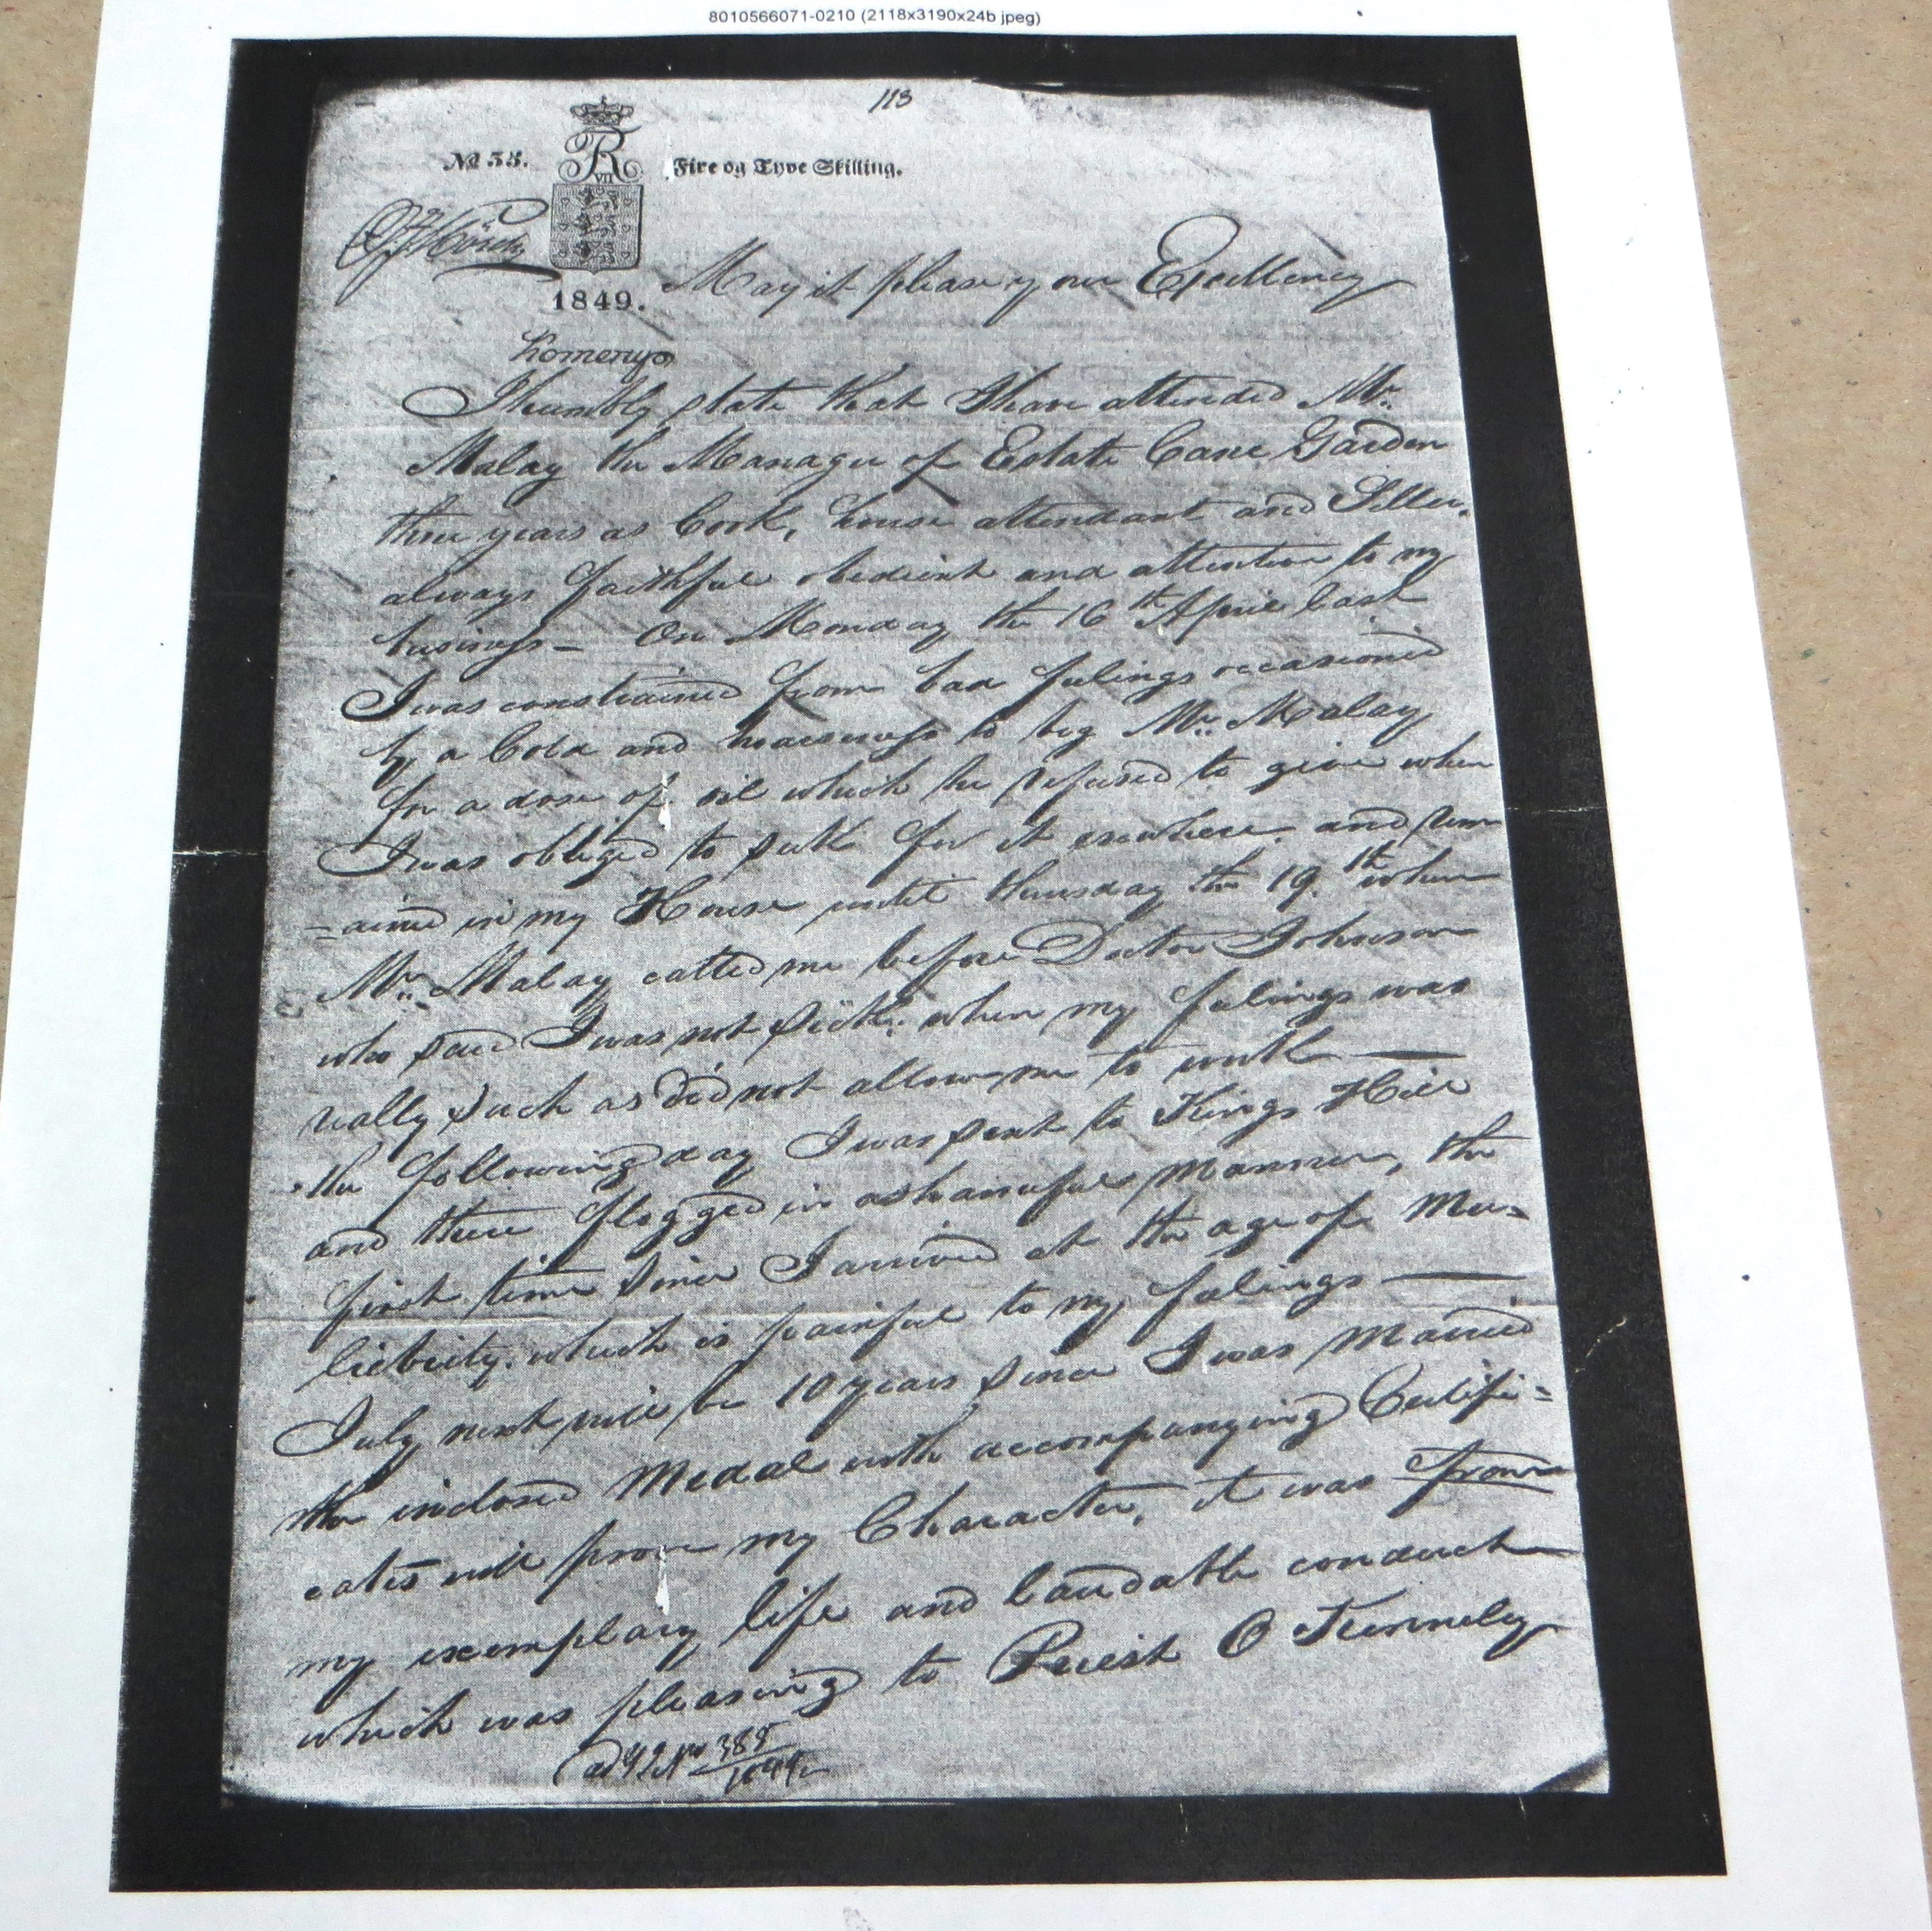 8010566071-0210 (2118x3190x24b jpeg)
113
No 55.
R
VII
Fire og Tyve Skilling.
1849.
May it please your Excellency
I humbly state that I have attended Mr.
Malay the Manager of Estate Cane Garden
three years as Cook, house attendant and
always faithful obedient and attentive to my
business – On Monday the 16th April last
I was constrained from bad feelings occasioned
by a Cold and hoarseness to beg Mr. Malay
for a dose of oil which he refused to give when
I was obliged to seek for it elsewhere, and rem
=ained in my House until thursday the 19.th when
Mr. Malay called me before Doctor Johnson
who said I was not sick: when my feelings was
really such as did not allow me to work —
the following day I was sent to Kings Hill
and there flogged in a shameful manner, the
first time since I arrived at the age of Mu=
liebrity. which is painful to my feelings —
July next will be 10 years since I was married
the inclosed Medal with accompanying Certifi=
cates will prove my Character, it was from
my exemplary life and laudable conduct
which was pleasing to Priest O Kennely